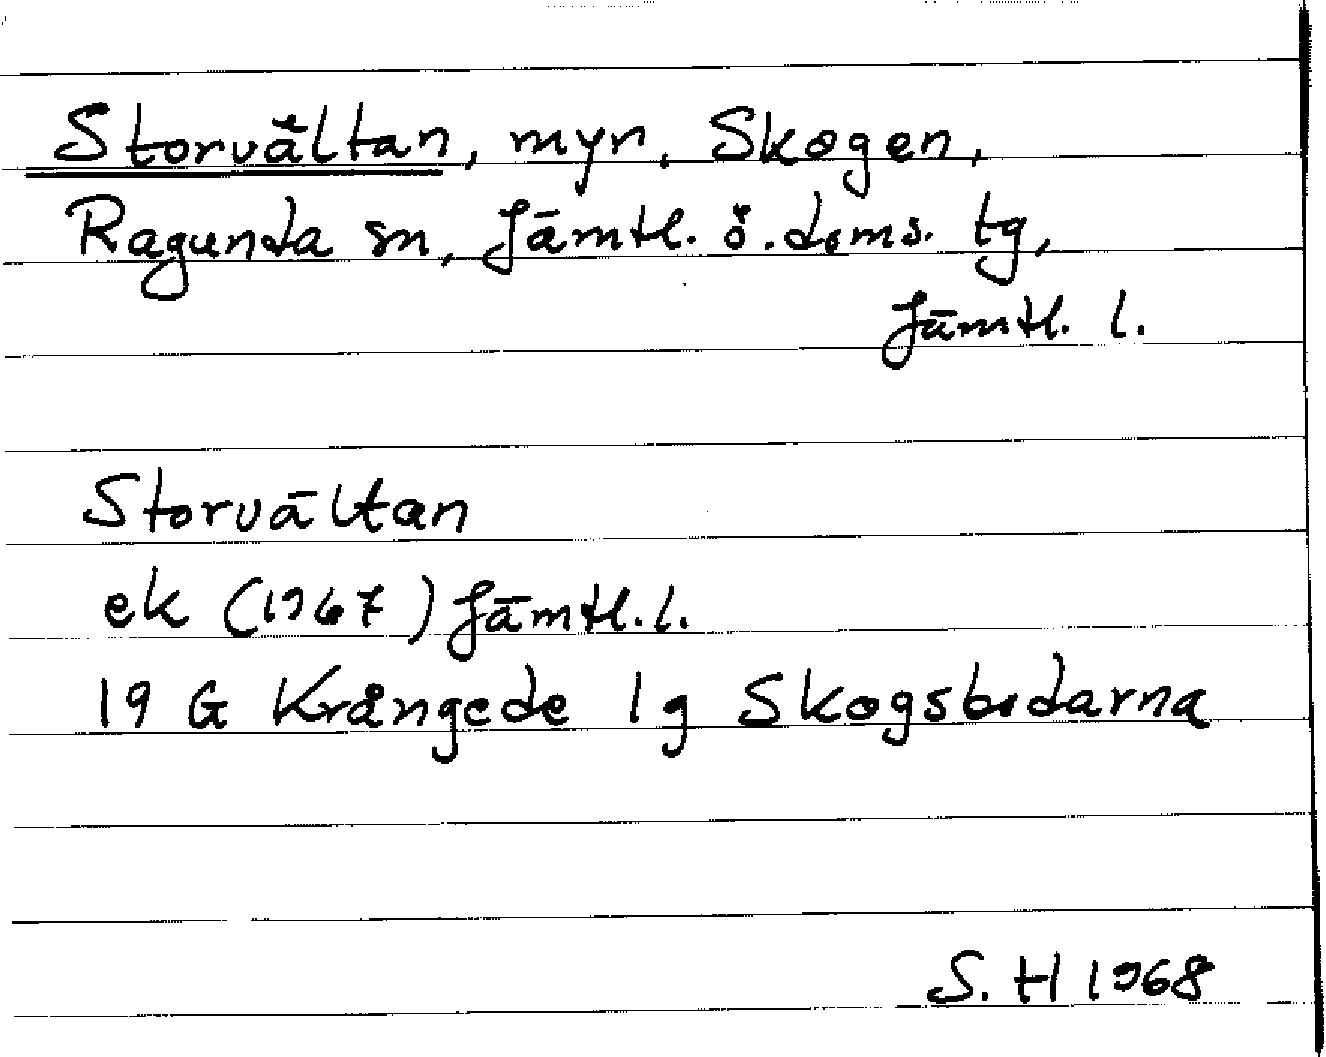 Storvältan, myr, Skogen,
Ragunda sn, Jämtl. ö. doms. tg,
Jämtl. l.
Storvältan
ek (1967) Jämtl. l.
19 G Krångede 1g Skogsbodarna
S. H 1968